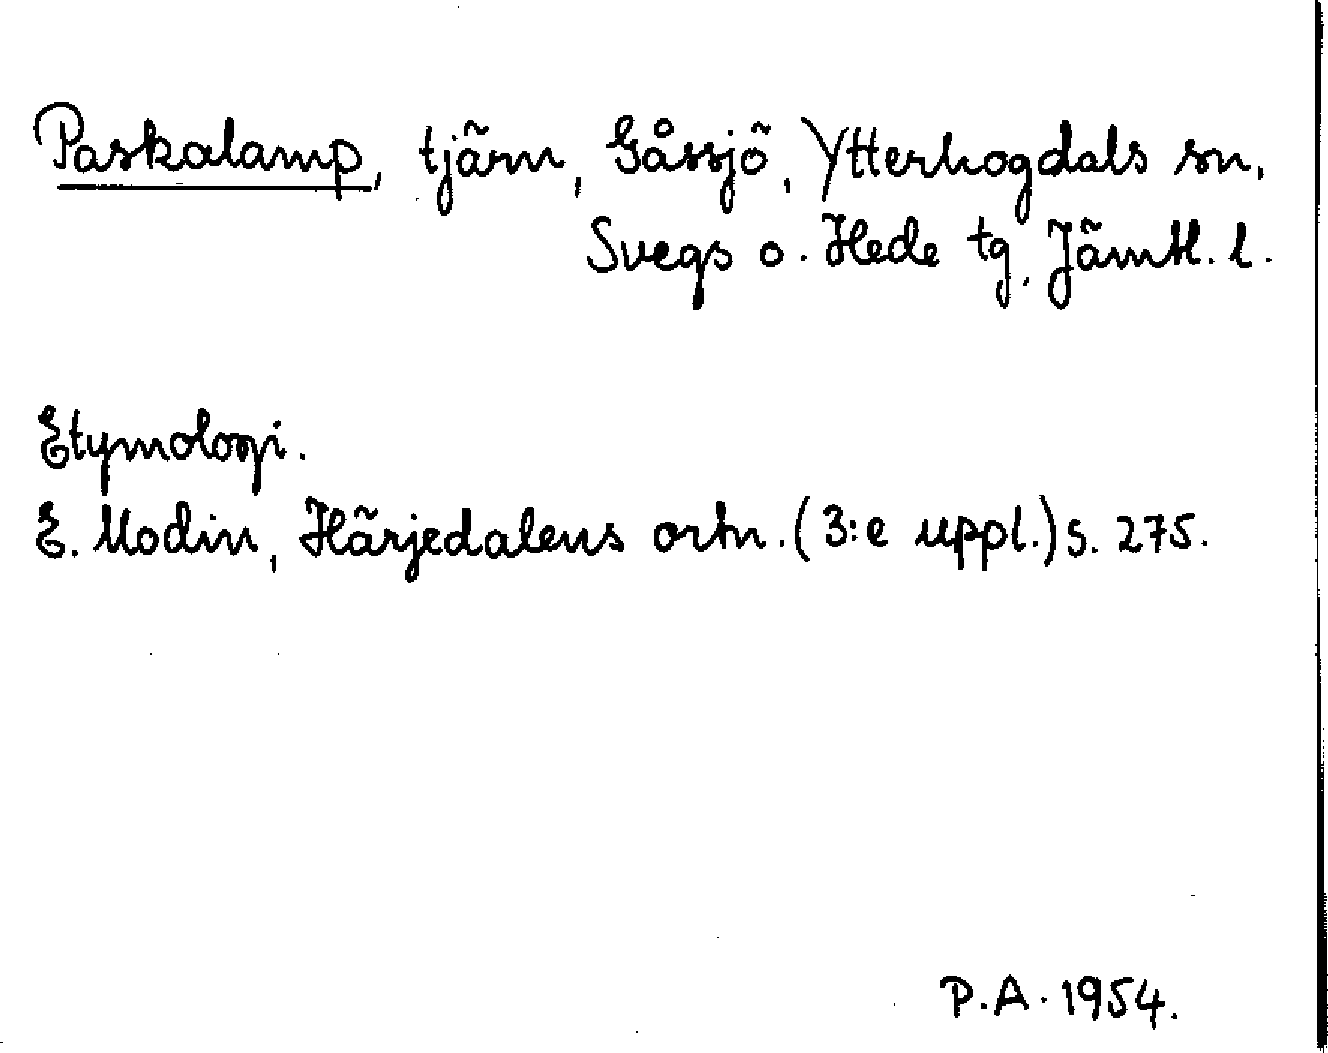 Paskalamp, tjärn, Gåssjö, Ytterhogdals sn,
Svegs o. Hede tg, Jämtl. l.
Etymologi.
E. Modin, Härjedalens ortn. (3:e uppl.) s. 275.
P.A. 1954.